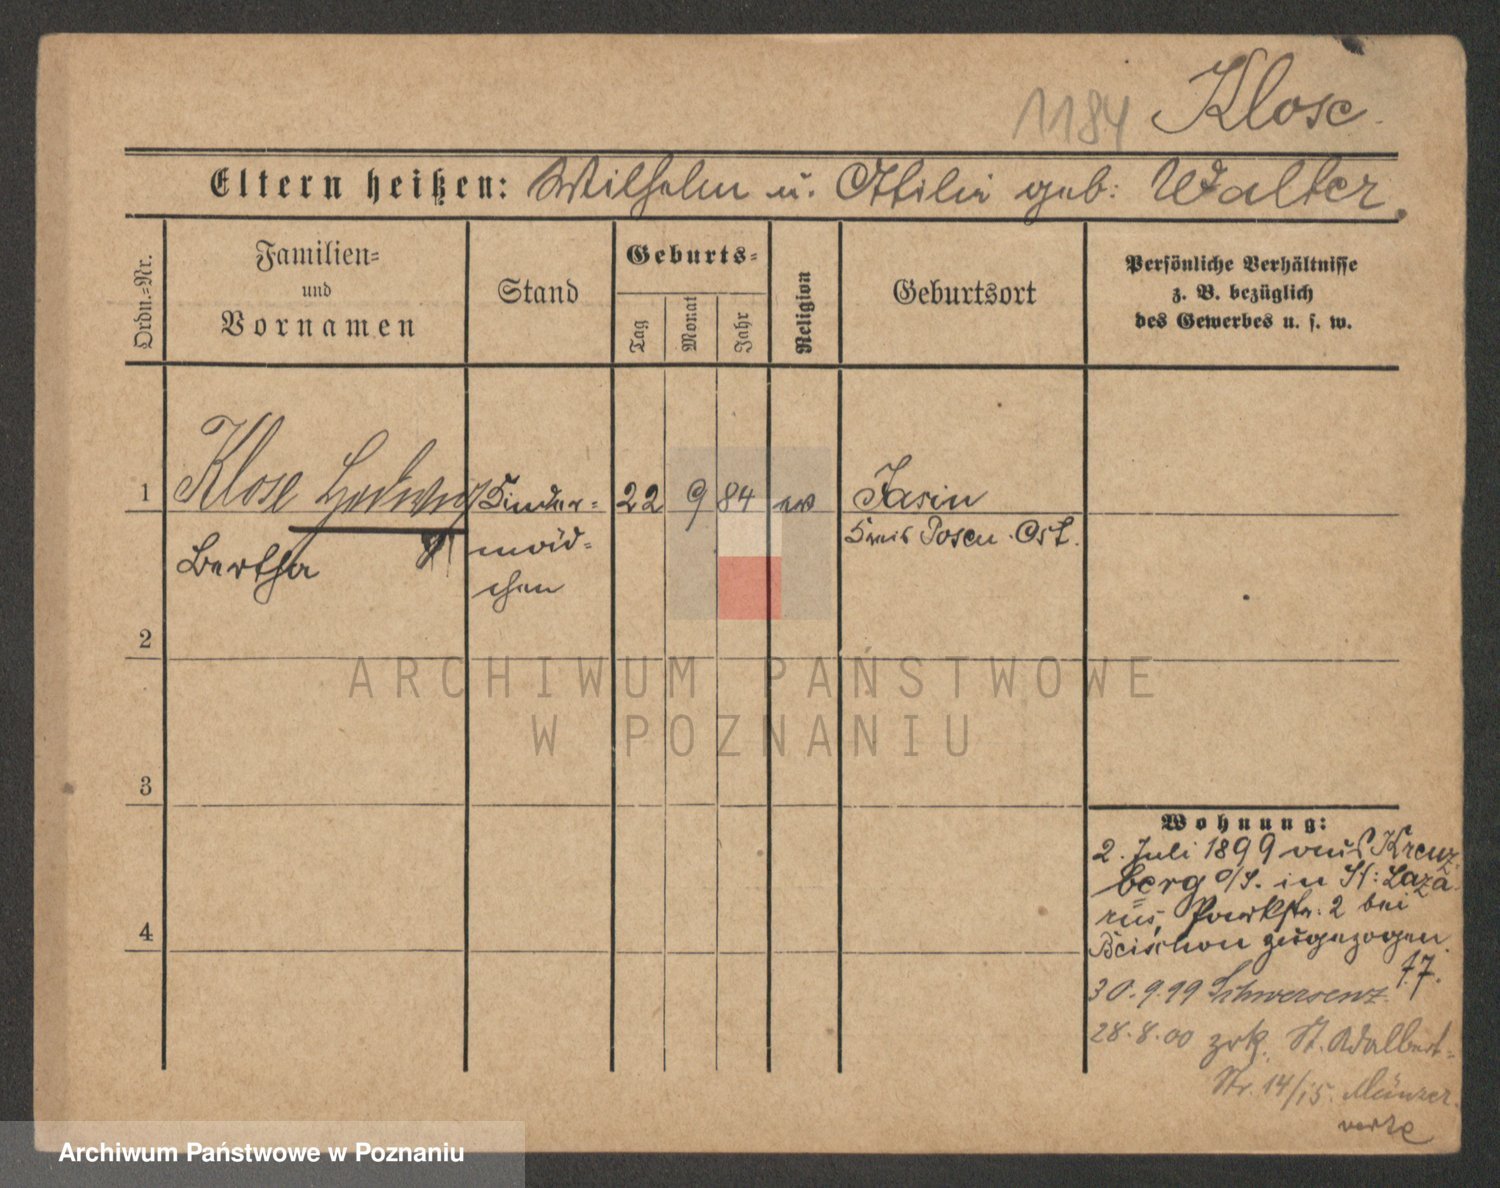 1184 Klose
Eltern heißen: Wilhelm u. Ottilie geb: Walter.
Ordn.-Nr.
Familien-
und
Vornamen
Stand
Geburts-
Tag
Monat
Jahr
Religion
Geburtsort
Persönliche Verhältnisse
z. B. bezüglich
des Gewerbes u. s. w.
1 Klose Hedwig Kinder- 22 9 84 ev Jasin
Bertha mäd- Kreis Posen-Ost.
chen
2
ARCHIWUM PAŃSTWOWE
W POZNANIU
3
Wohnung:
2. Juli 1899 aus Kreuz-
berg O/S. in St: Laza-
rus, Parkstr. 2 bei
4
zugezogen.
30.9.99 Schwersenz.
28.8.00 zrk. St. Adalbert-
Str. 14/15.
Archiwum Państwowe w Poznaniu